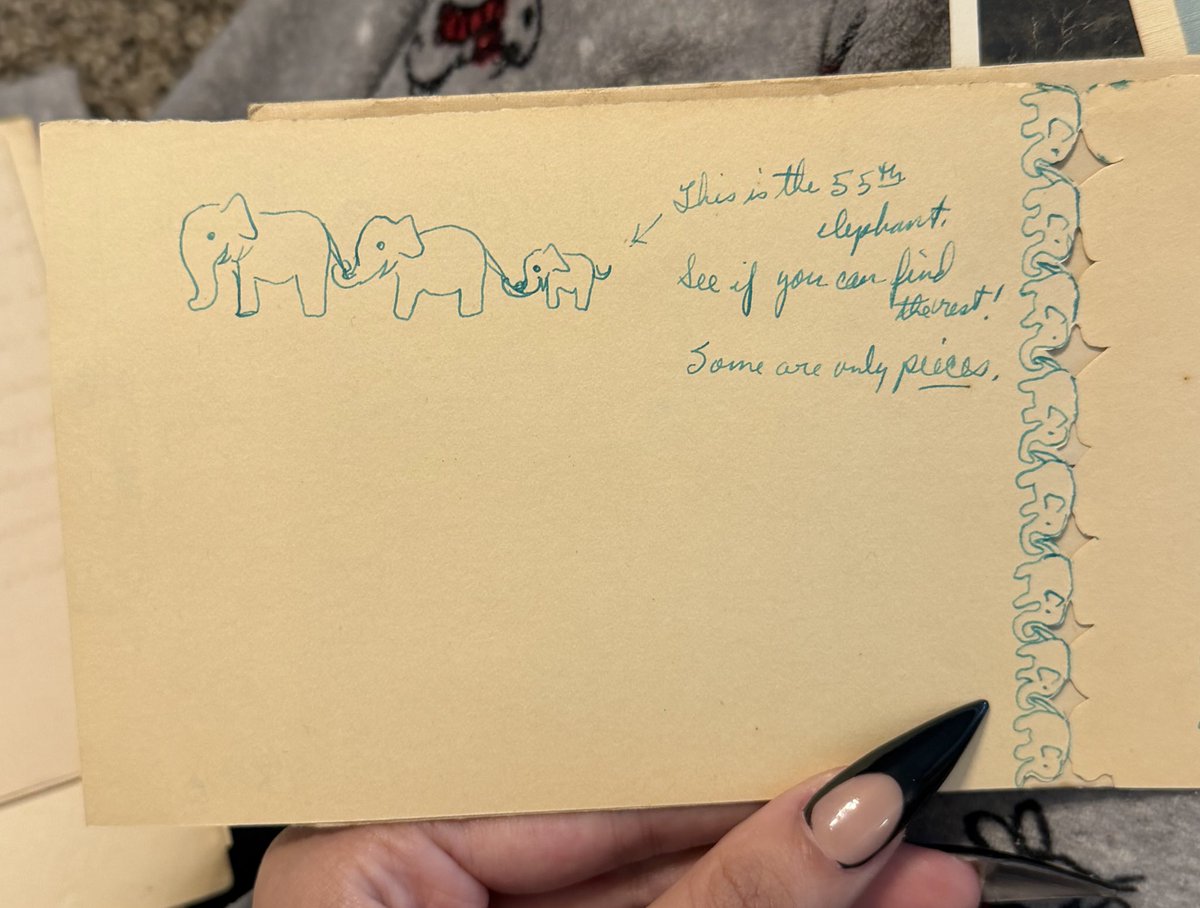 This is the 55th
elephant.
See if you can find
the rest!
Some are only pieces.